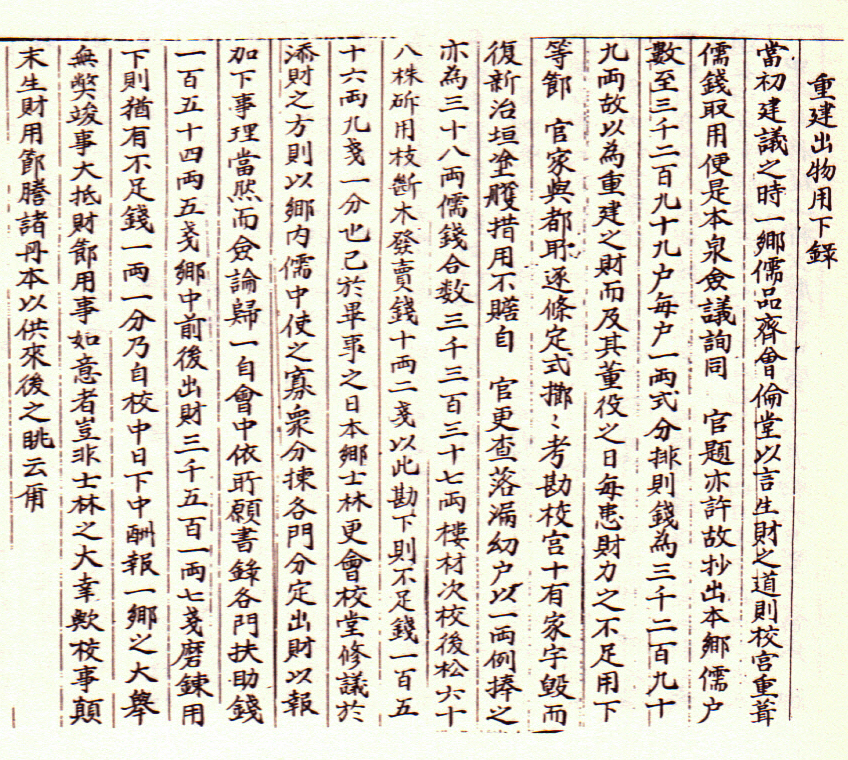 重建出物用下錄
當初建議之時一鄉儒品齊會倫堂以言生財之道則校宮重葺
儒錢取用便是本泉僉議詢同 官題亦許故抄出本鄉儒户
數至三千二百九十九户每户一兩式分排則錢為三千二百九十
九兩故以為重建之財而及其董役之日每患財力之不足用下
等節 官家與都耶逐條定式擲〻考勘校宮十有家字毁而
復新治垣塗雘措用不贍自 官更查落漏幼户以一兩例捧之
亦為三十八兩儒錢合数三千三百三十七兩樓材次校後松六十
八株斫用枝斷木發賣錢十兩二戔以此勘下則不足錢一百五
十六兩九戔一分也已於畢事之日本鄉士林更會校堂修議於
添財之方則以鄉內儒中使之寡衆分揀各門分定出財以報
加下事理當然而僉論歸一自會中依所願書鋒各門扶助錢
一百五十四兩五戔鄉中前後出財三千五百一兩七戔磨鍊用
下則猶有不足錢一兩一分乃自校中日下中酬報一鄉之大舉
無獘竣事大抵財節用事如意者豈非士林之大幸歟校事顛
末生財用節謄諸丹本以供來後之眺云甭